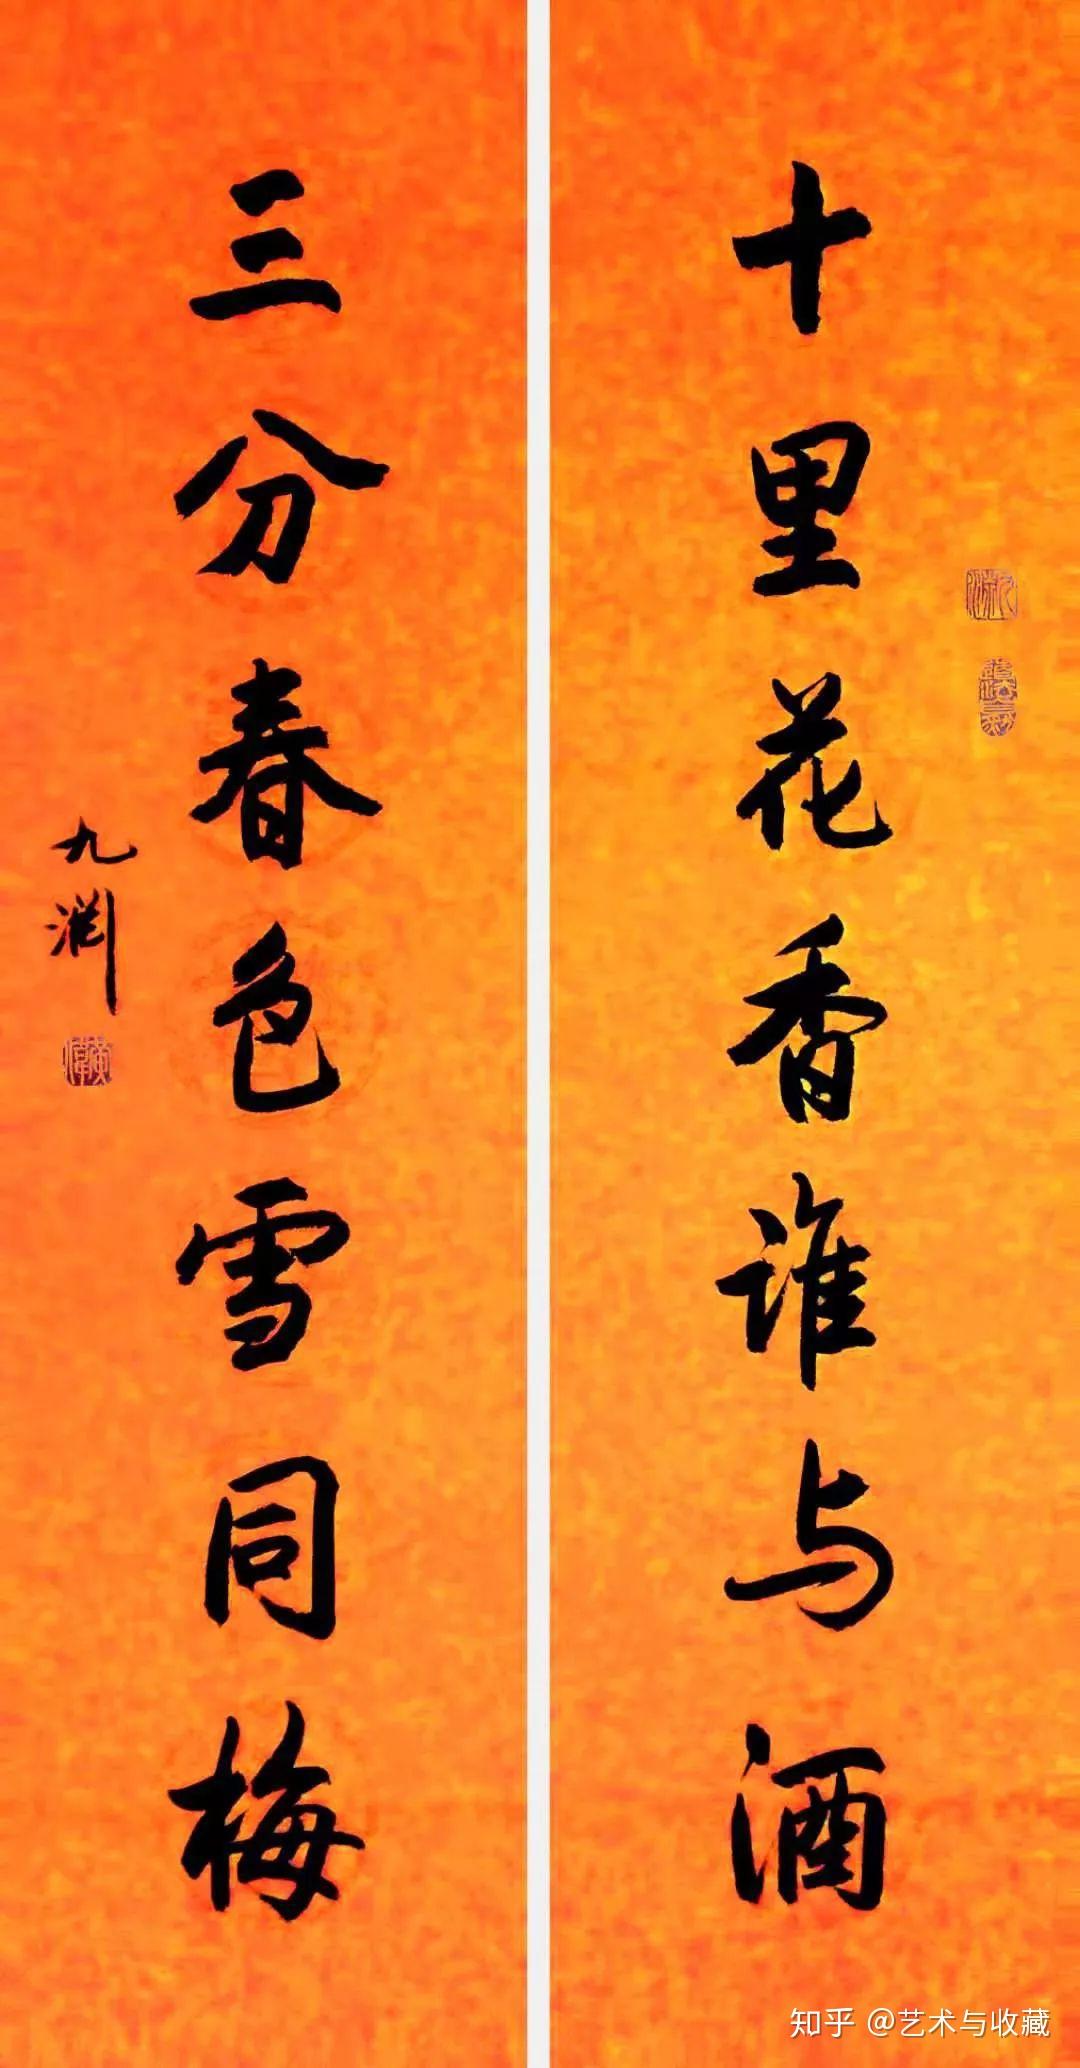 十里花香谁与酒
三分春色雪同梅
九渊
知乎 @艺术与收藏